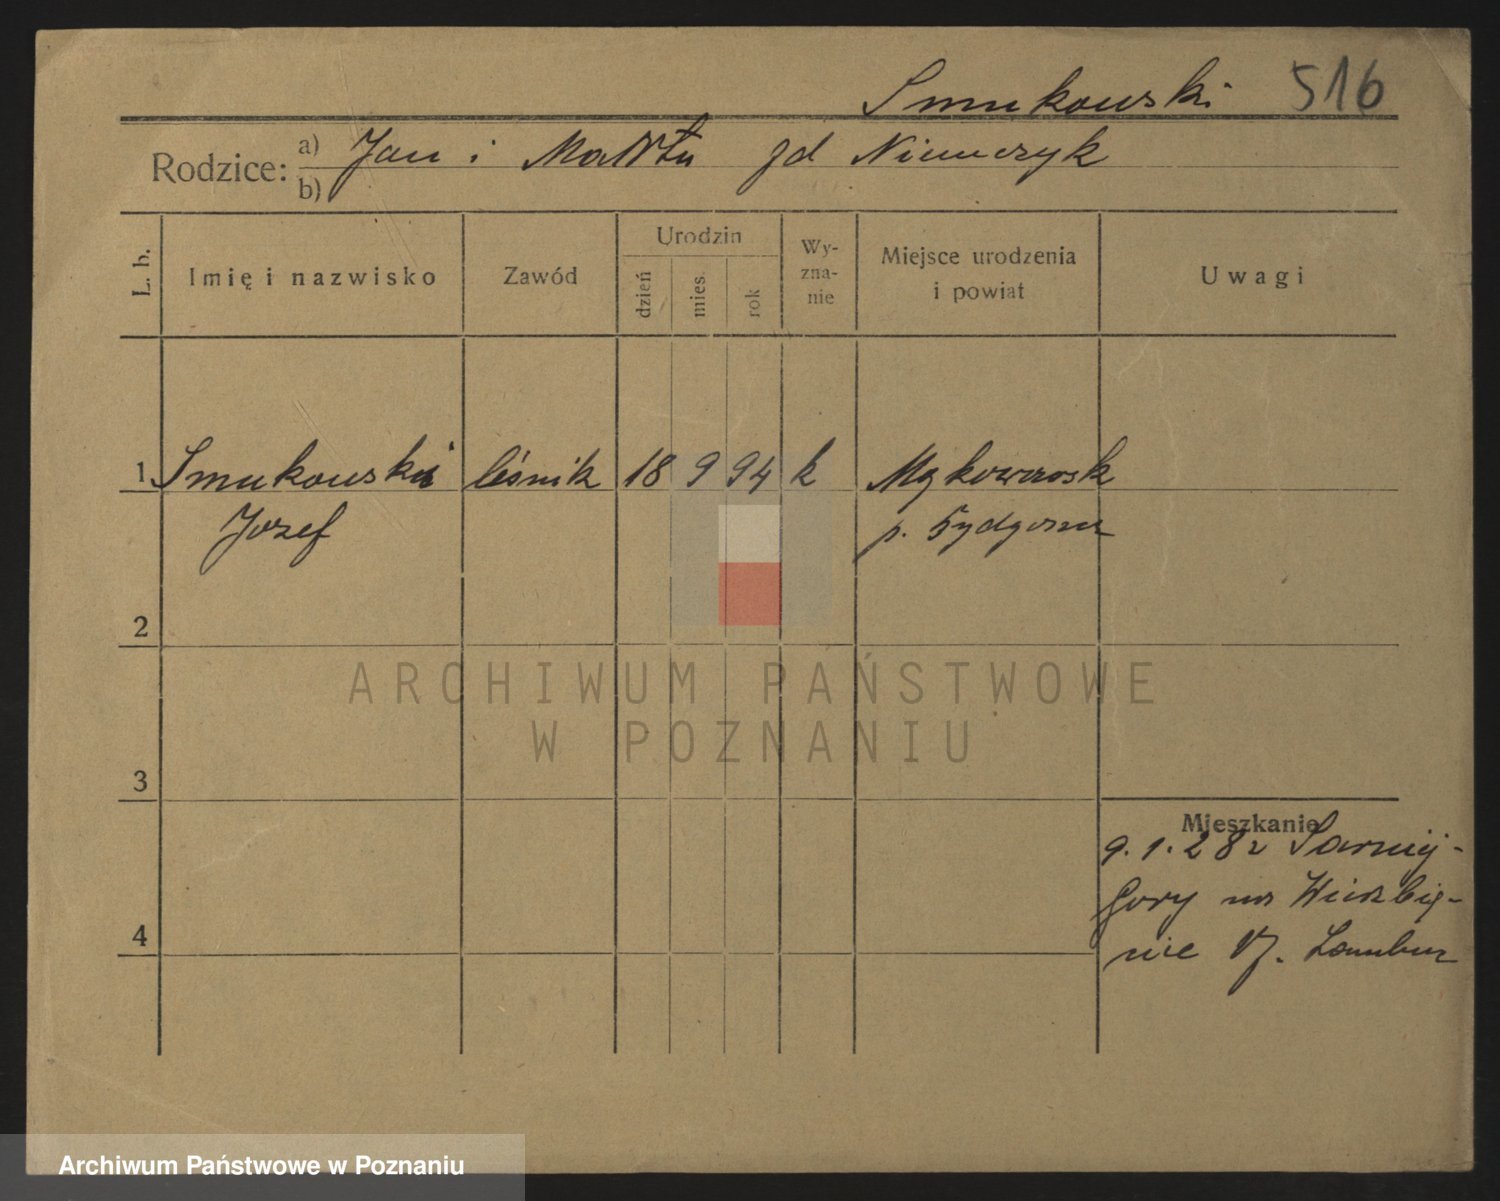 Smukowski 516
Rodzice: a) Jan i Marta zd Niemczyk
b)
L. b. Imię i nazwisko Zawód Urodzin dzień mies. rok Wy-zna-nie Miejsce urodzenia i powiat Uwagi
1 Smukowski leśnik 18 9 94 k
Józef p. Bydgoszcz
2
ARCHIWUM PAŃSTWOWE
W POZNANIU
3
Mieszkanie
9.1.28 z Sarniej-
Góry
4
Archiwum Państwowe w Poznaniu